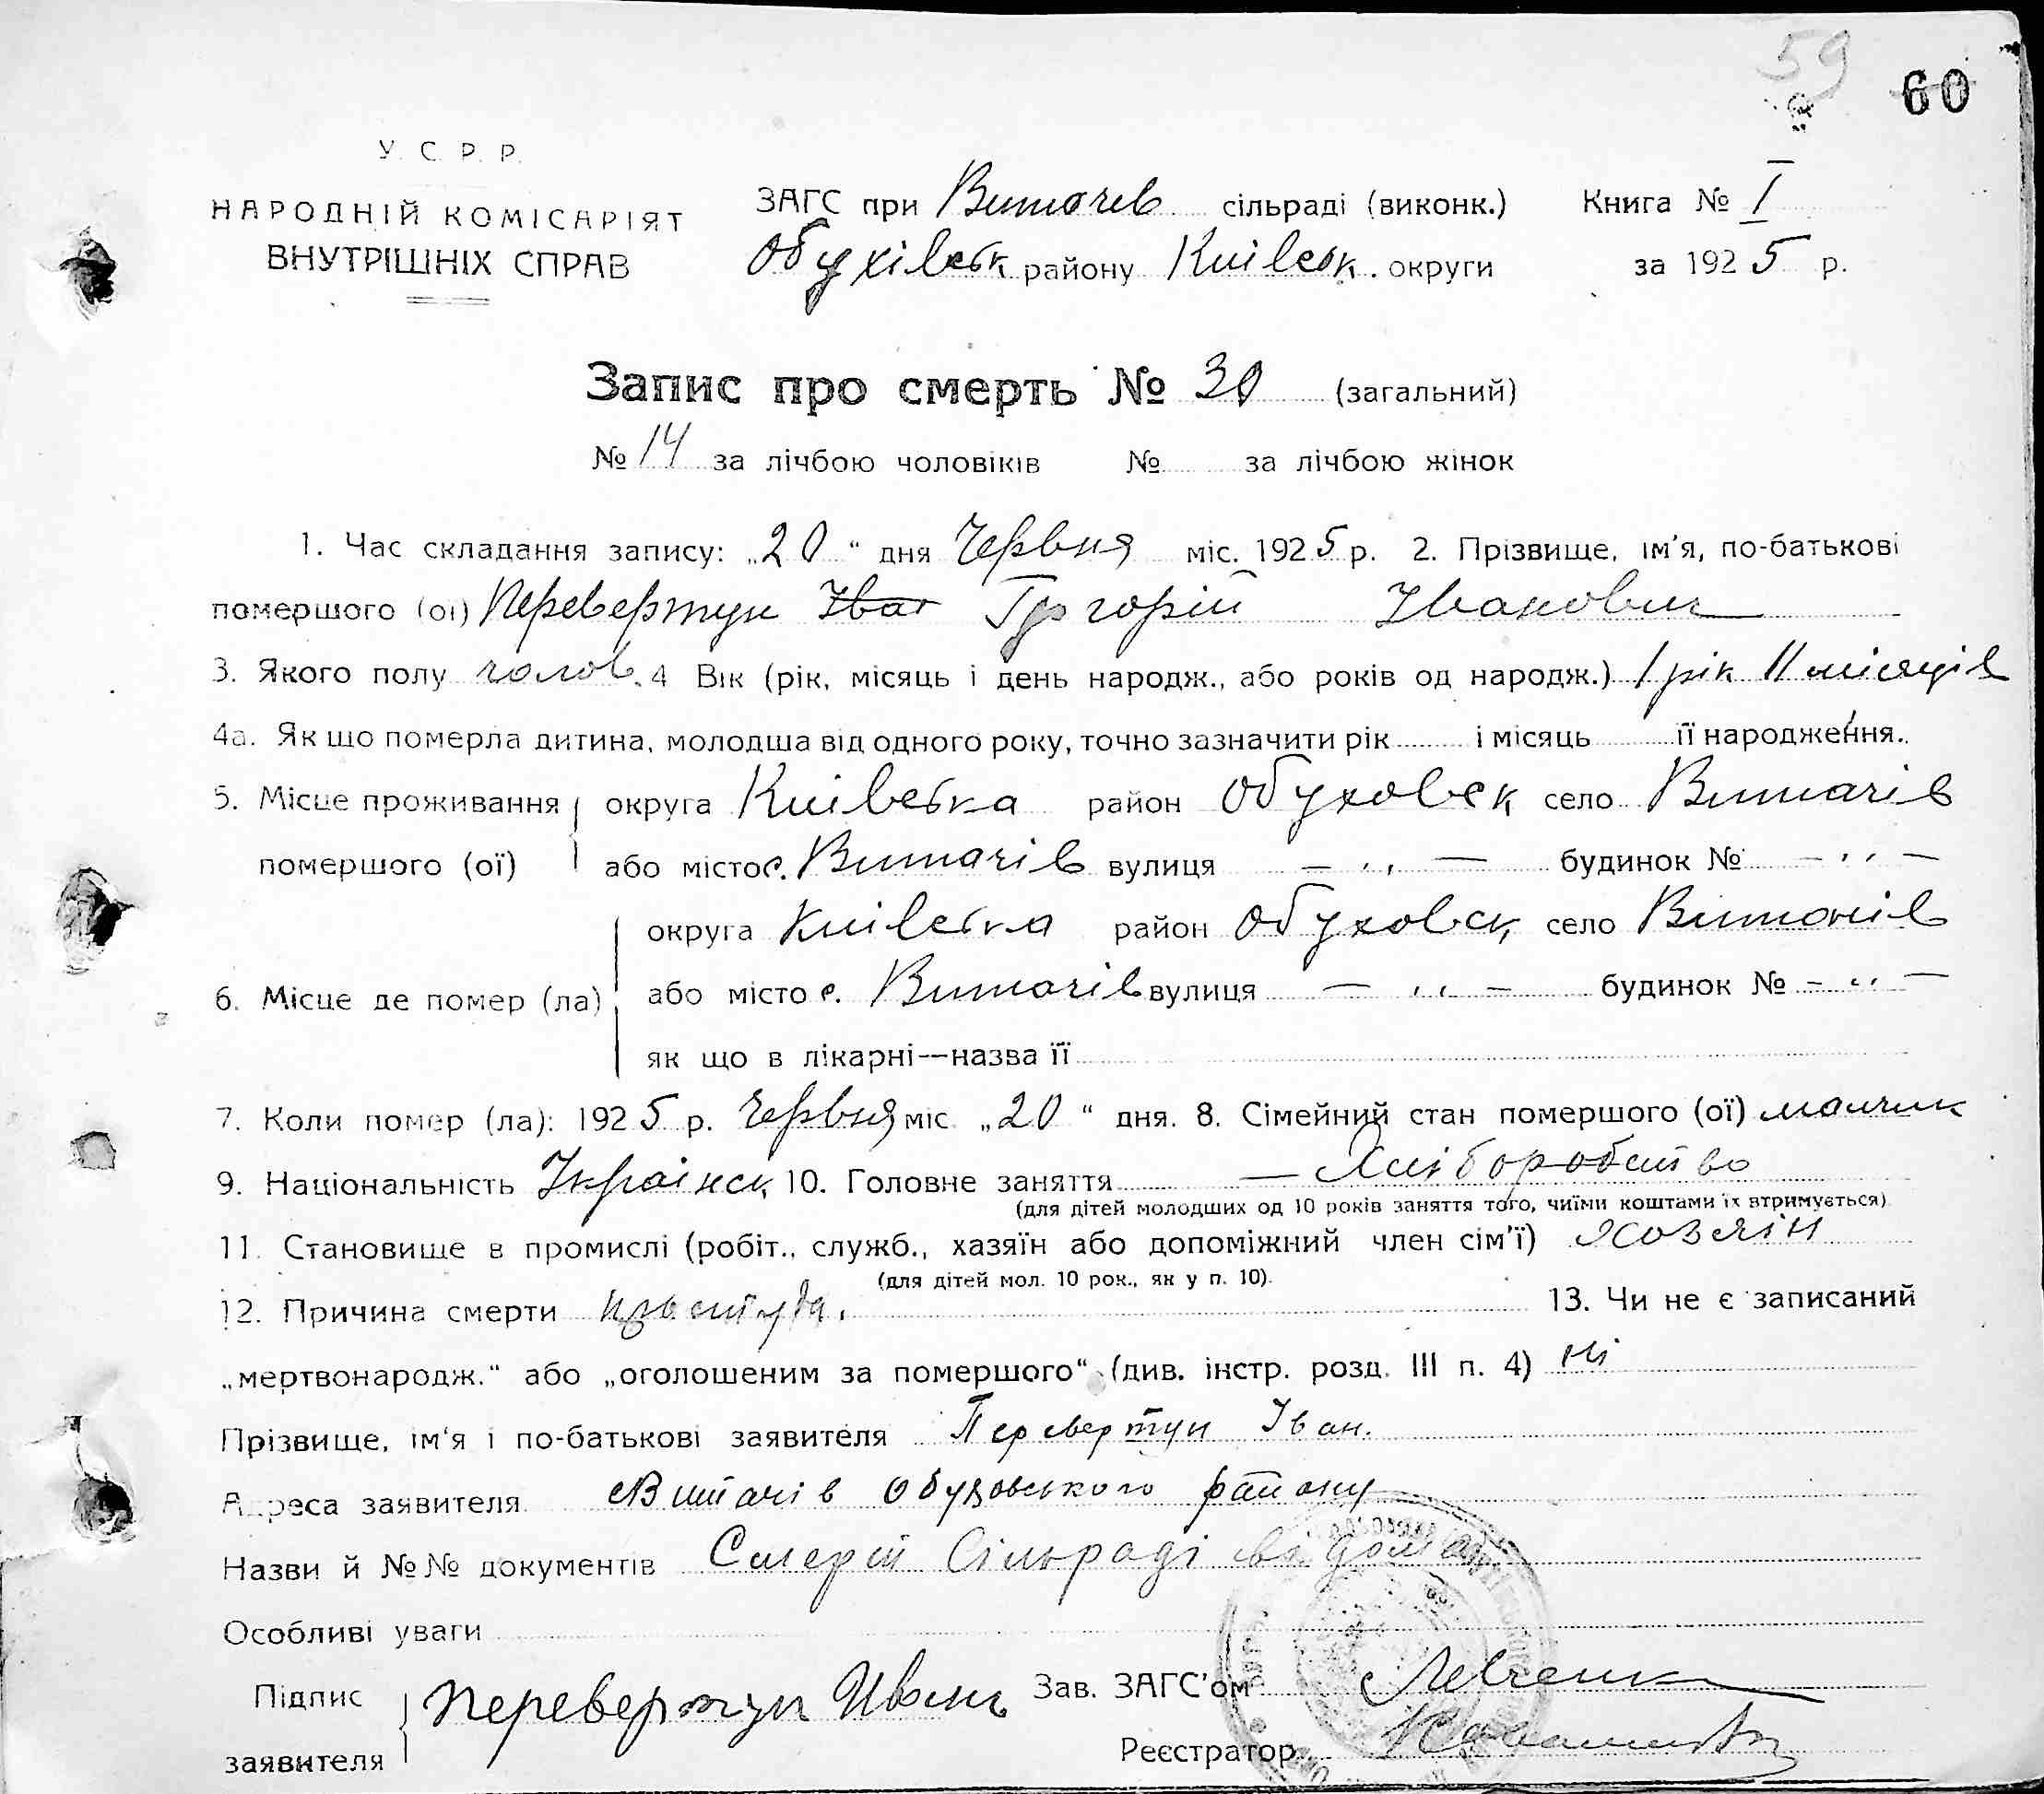 59
60
У. С. Р. Р.
НАРОДНІЙ КОМІСАРІЯТ
ВНУТРІШНІХ СПРАВ
ЗАГС при Витачев сільраді (виконк.) Книга № I
Обухівськ району Київськ. округи за 1925 р.
Запис про смерть № 30 (загальний)
№ 14 за лічбою чоловіків № за лічбою жінок
1. Час складання запису: „20“ дня Червня міс. 1925 р. 2. Прізвище, ім'я, по-батькові
помершого (ої) Перевертун Іван Григорій Іванович
3. Якого полу чолов. 4 Вік (рік, місяць і день народж., або років од народж.) 1 рік 11 місяців
4а. Як що померла дитина, молодша від одного року, точно зазначити рік і місяць її народження.
5. Місце проживання округа Київська район Обуховск село Витачів
помершого (ої) або місто с. Витачів вулиця — „ — будинок № — „ —
округа Київська район Обуховск село Витачів
6. Місце де помер (ла) або місто с. Витачів вулиця — „ — будинок № — „ —
як що в лікарні—назва її
7. Коли помер (ла): 1925 р. Червня міс. „20“ дня. 8. Сімейний стан помершого (ої) малчик
9. Національність Українск 10. Головне заняття — Хліборобство
(для дітей молодших од 10 років заняття того, чиїми коштами їх втримується)
11. Становище в промислі (робіт., служб., хазяїн або допоміжний член сім'ї) Хозяін
(для дітей мол. 10 рок., як у п. 10).
12. Причина смерти 13. Чи не є записаний
„мертвонародж.“ або „оголошеним за помершого“ (див. інстр. розд. III п. 4) ні
Прізвище, ім'я і по-батькові заявителя Перевертун Іван.
Адреса заявителя с Витачів Обуховського району
Назви й №№ документів Смерт Сільраді
Особливі уваги
Підпис заявителя Перевертун Иванъ Зав. ЗАГС'ом Левченко
Реєстратор